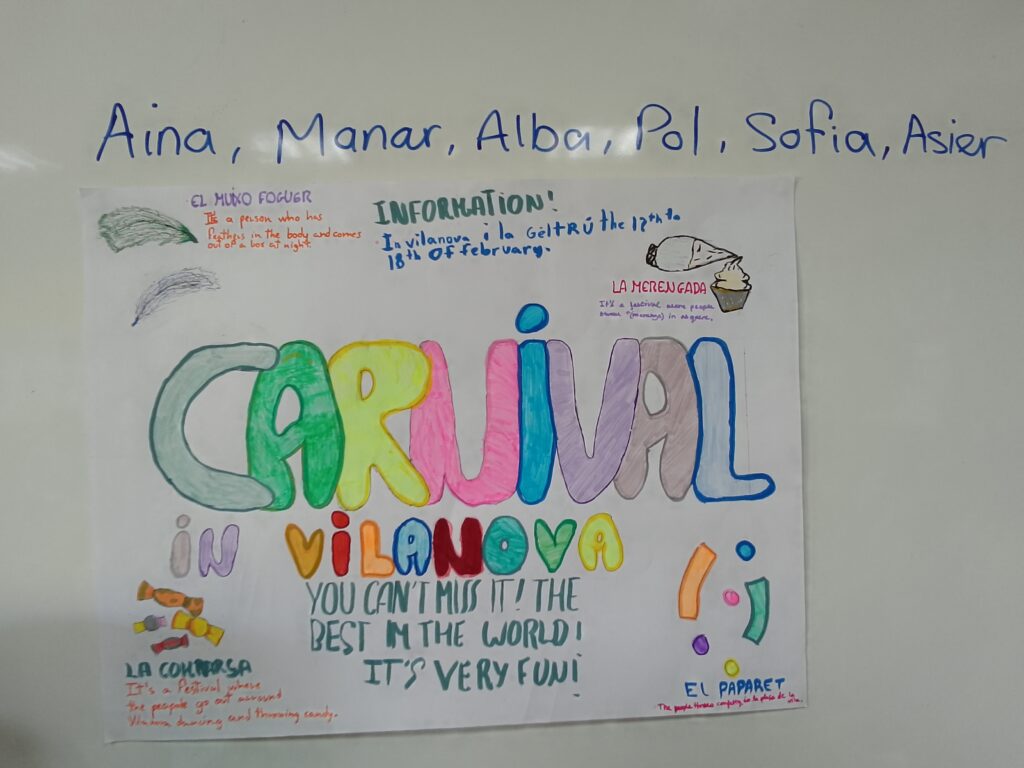 Aina, Manar, Alba, Pol, Sofia, Asier
EL MUIXO FOGUER
It's a person who has
feathers in the body and comes
out of a box at night.
INFORMATION!
In vilanova i la GeltRÚ the 12th to
18th OF february.
LA MERENGADA
It's a festival were people
(merengue) in square.
CARNIVAL
iN ViLANOVA
YOU CAN'T MISS IT! THE
BEST IN THE WORLD!
IT'S VERY FUN!
LA COMPARSA
It's a festival where
the people go out around
Vilanova dancing and throwing candy.
EL PAPARET
The people throws in la plaça de la
vila.